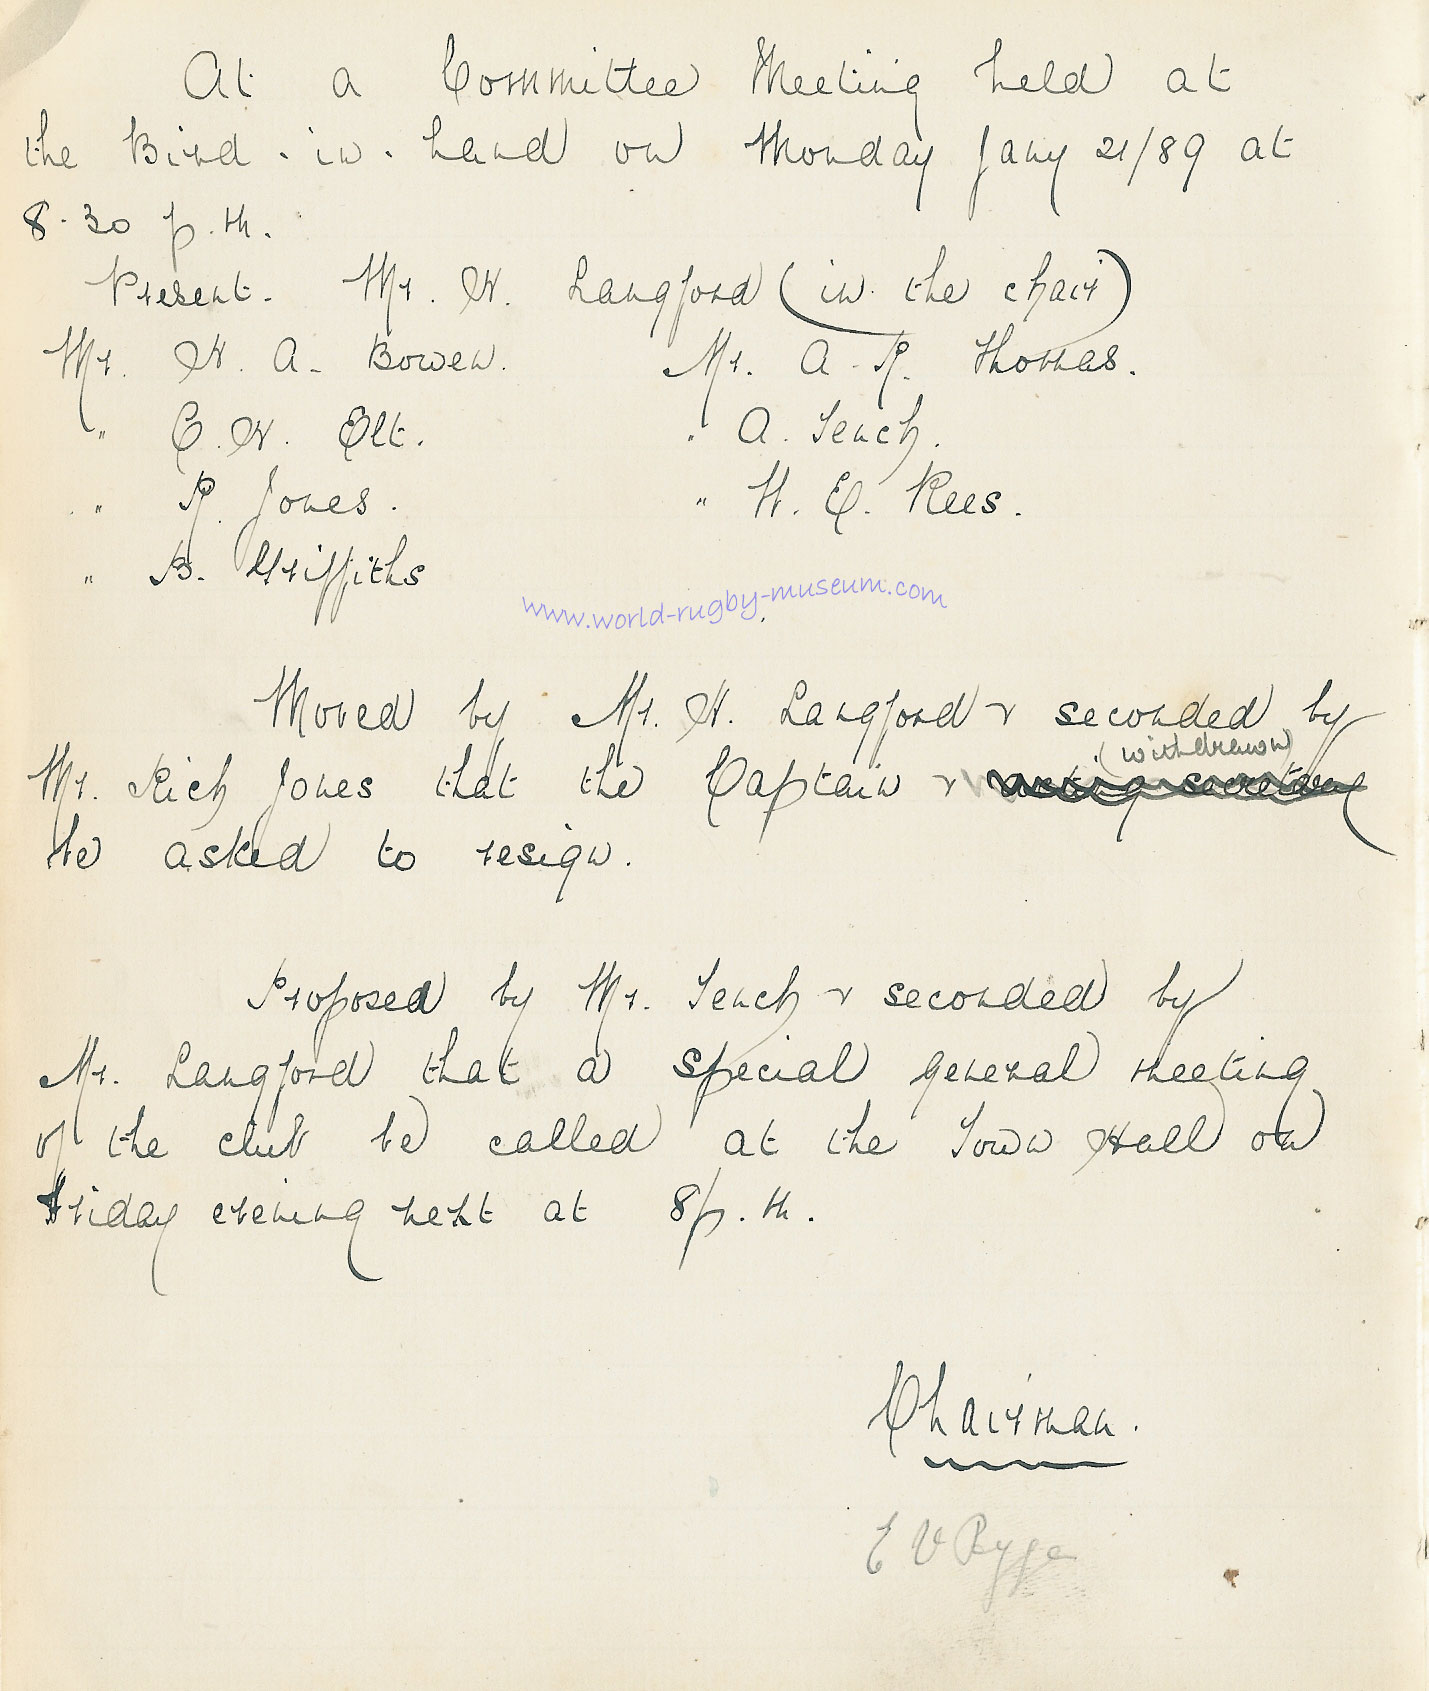 At a Committee Meeting held at
the Bird-in-hand on Monday Jany 21/89 at
8.30 p.m.
Present. Mr. W. Langford (in the chair)
Mr. W. A. Bowen. Mr. A. R. Thomas.
" C. W. Olt. " A. Tench.
" R. Jones. " H. E. Rees.
" B. Griffiths
www.world-rugby-museum.com
Moved by Mr. W. Langford & seconded by
(withdrawn)
Mr. Rich Jones that the Captain & acting secretary
be asked to resign.
Proposed by Mr. Tench & seconded by
Mr. Langford that a special general meeting
of the club be called at the Town Hall on
Friday evening next at 8 p.m.
Chairman.
E V